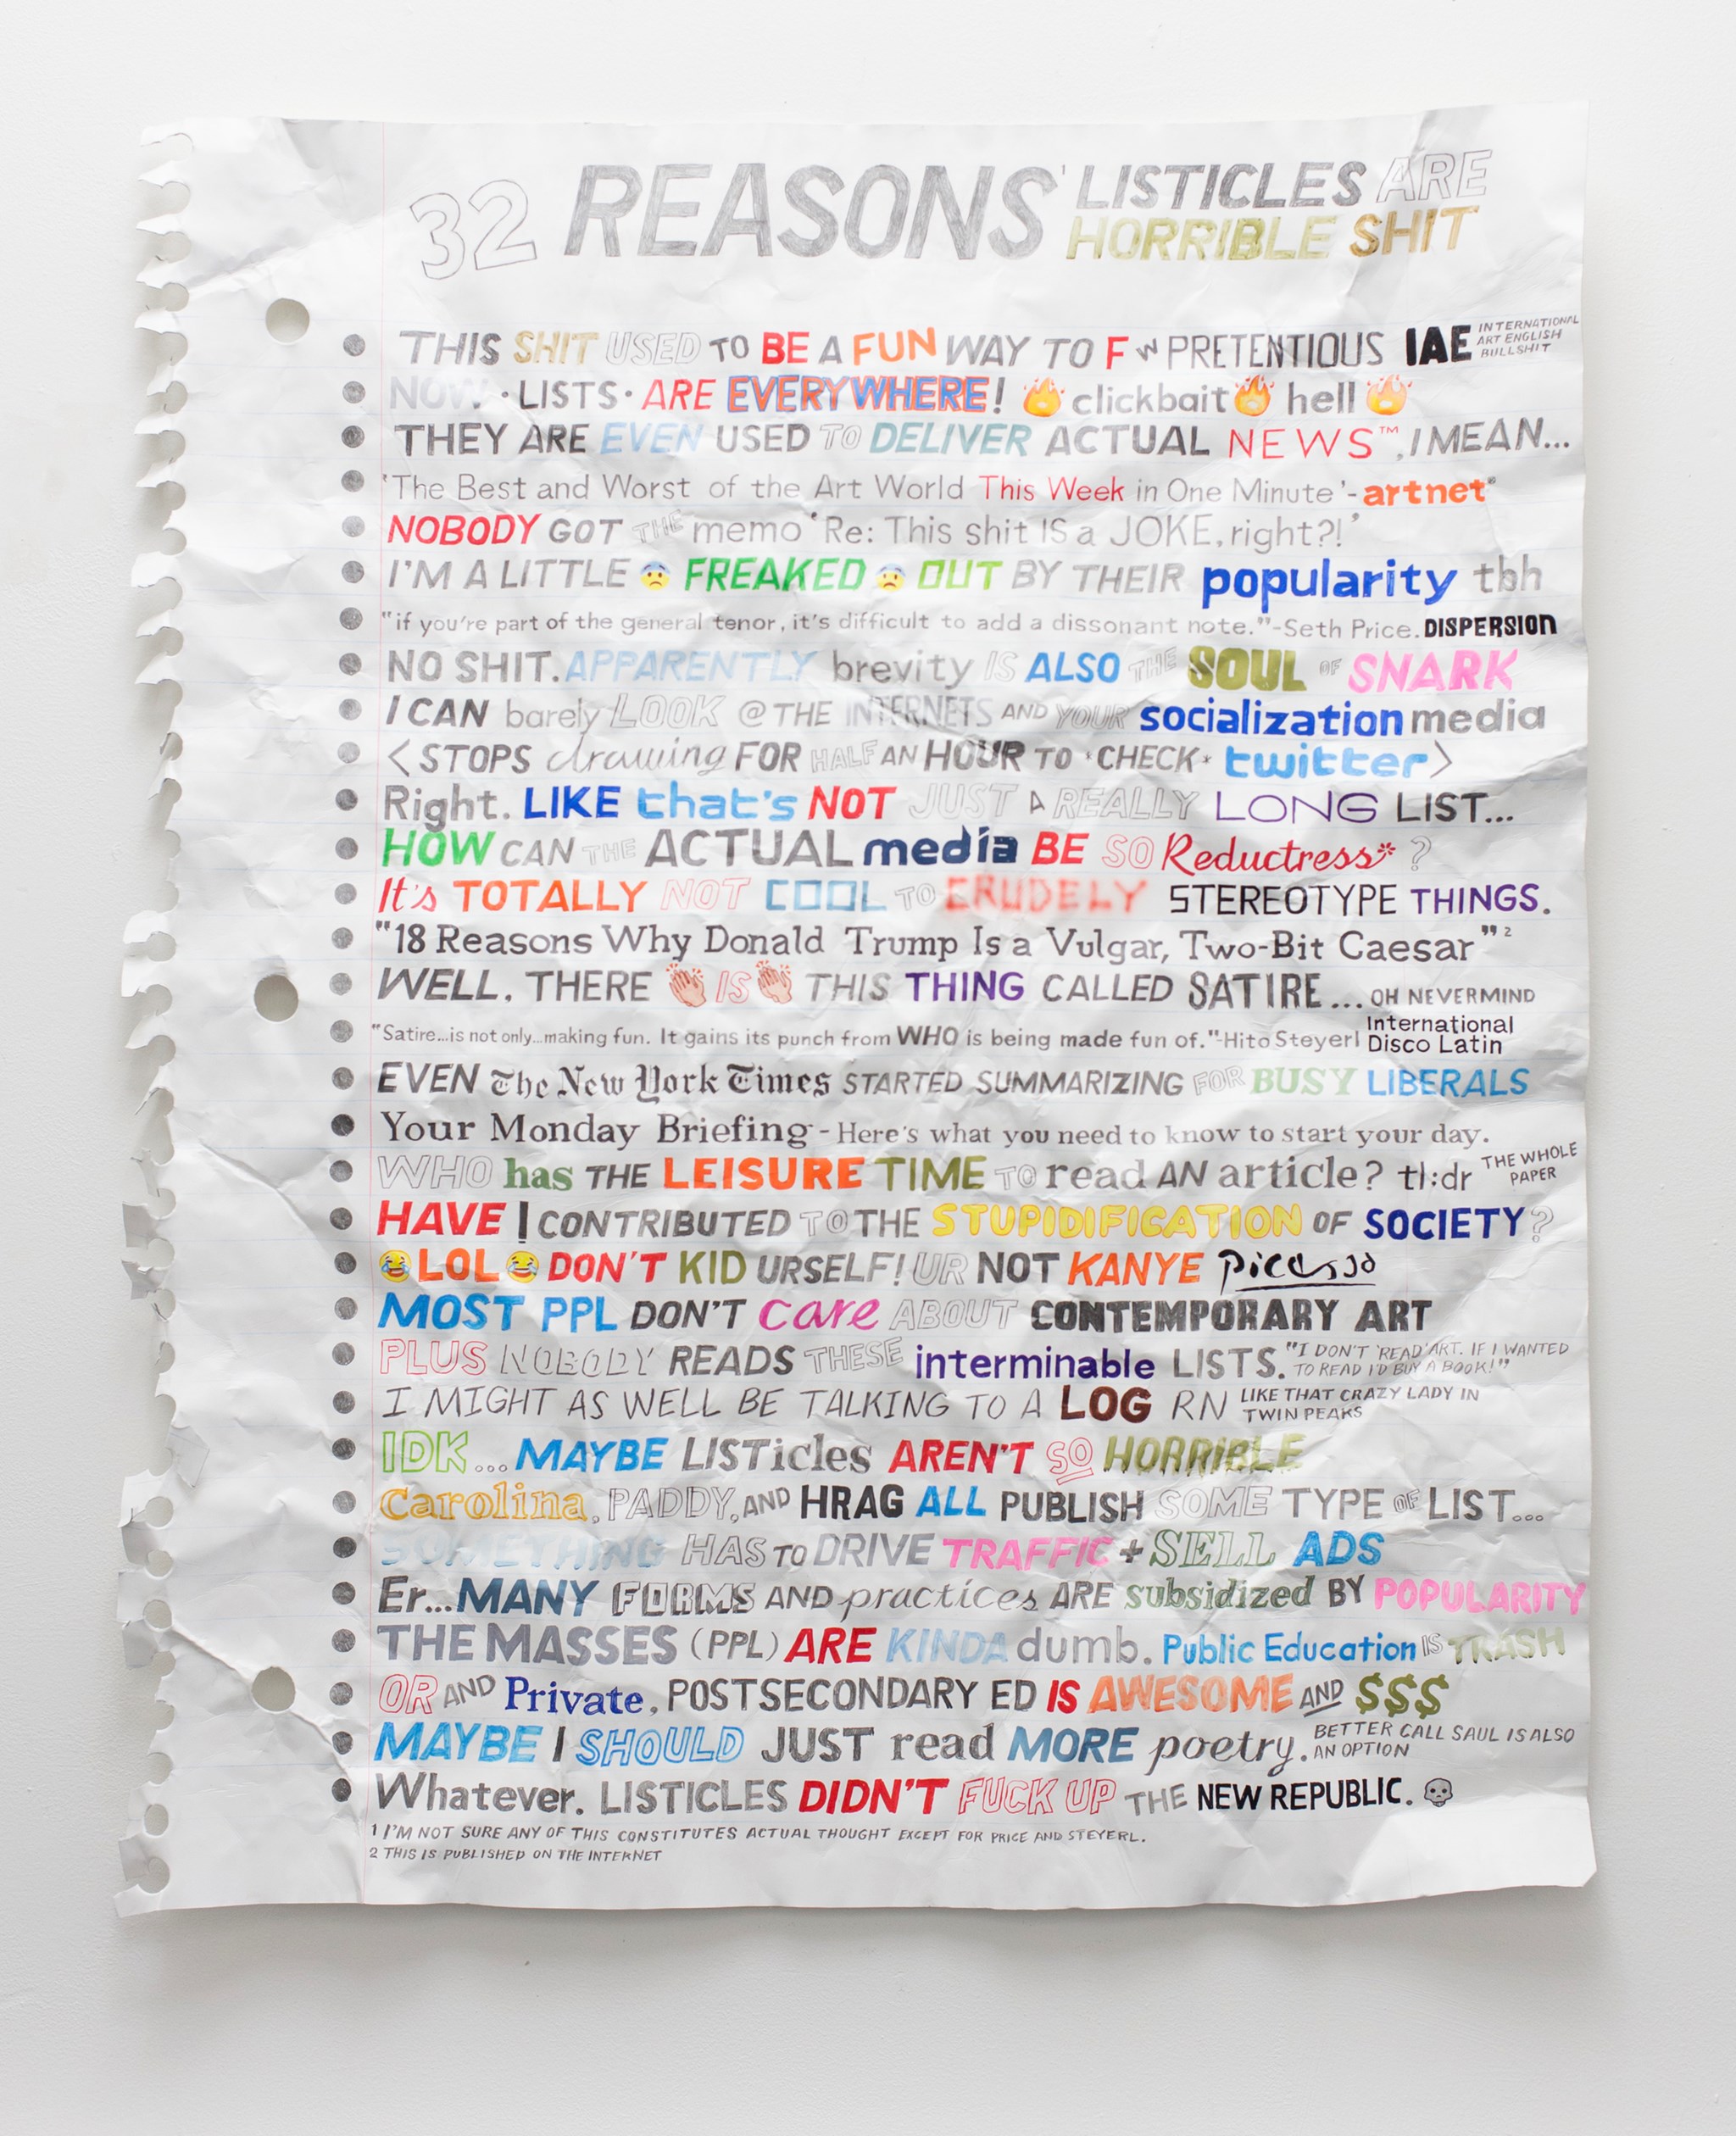 32 REASONS¹ LISTICLES ARE HORRIBLE SHIT
● THIS SHIT USED TO BE A FUN WAY TO F W PRETENTIOUS IAE INTERNATIONAL ART ENGLISH BULLSHIT
● NOW • LISTS • ARE EVERYWHERE! 🔥 clickbait 🔥 hell 🔥
● THEY ARE EVEN USED TO DELIVER ACTUAL NEWS™, I MEAN...
● 'The Best and Worst of the Art World This Week in One Minute' - artnet®
● NOBODY GOT THE memo 'Re: This shit IS a JOKE, right?!'
● I'M A LITTLE 😨 FREAKED 😨 OUT BY THEIR popularity tbh
● "if you're part of the general tenor, it's difficult to add a dissonant note."-Seth Price. DISPERSION
● NO SHIT. APPARENTLY brevity IS ALSO THE SOUL OF SNARK
● I CAN barely LOOK @ THE INTERNETS AND YOUR socialization media
● <STOPS drawing FOR HALF AN HOUR TO *CHECK* twitter>
● Right. LIKE that's NOT JUST A REALLY LONG LIST...
● HOW CAN THE ACTUAL media BE SO Reductress* ?
● It's TOTALLY NOT COOL TO CRUDELY STEREOTYPE THINGS.
● "18 Reasons Why Donald Trump Is a Vulgar, Two-Bit Caesar" ²
● WELL, THERE 👏 IS 👏 THIS THING CALLED SATIRE... OH NEVERMIND
● "Satire...is not only...making fun. It gains its punch from WHO is being made fun of."-Hito Steyerl International Disco Latin
● EVEN The New York Times STARTED SUMMARIZING FOR BUSY LIBERALS
● Your Monday Briefing - Here's what you need to know to start your day.
● WHO has THE LEISURE TIME TO read AN article? tl:dr THE WHOLE PAPER
● HAVE I CONTRIBUTED TO THE STUPIDIFICATION OF SOCIETY?
● 😂 LOL 😂 DON'T KID URSELF! UR NOT KANYE Picasso
● MOST PPL DON'T care ABOUT CONTEMPORARY ART
● PLUS NOBODY READS THESE interminable LISTS. "I DON'T 'READ' ART. IF I WANTED TO READ I'D BUY A BOOK!"
● I MIGHT AS WELL BE TALKING TO A LOG RN LIKE THAT CRAZY LADY IN TWIN PEAKS
● IDK... MAYBE LISTicles AREN'T SO HORRIBLE
● Carolina, PADDY, AND HRAG ALL PUBLISH SOME TYPE OF LIST...
● SOMETHING HAS TO DRIVE TRAFFIC + SELL ADS
● Er...MANY FORMS AND practices ARE subsidized BY POPULARITY
● THE MASSES (PPL) ARE KINDA dumb. Public Education IS TRASH
● OR AND Private, POSTSECONDARY ED IS AWESOME AND $$$
● MAYBE I SHOULD JUST read MORE poetry. BETTER CALL SAUL IS ALSO AN OPTION
● Whatever. LISTICLES DIDN'T FUCK UP THE NEW REPUBLIC. 💀
1 I'M NOT SURE ANY OF THIS CONSTITUTES ACTUAL THOUGHT EXCEPT FOR PRICE AND STEYERL.
2 THIS IS PUBLISHED ON THE INTERNET